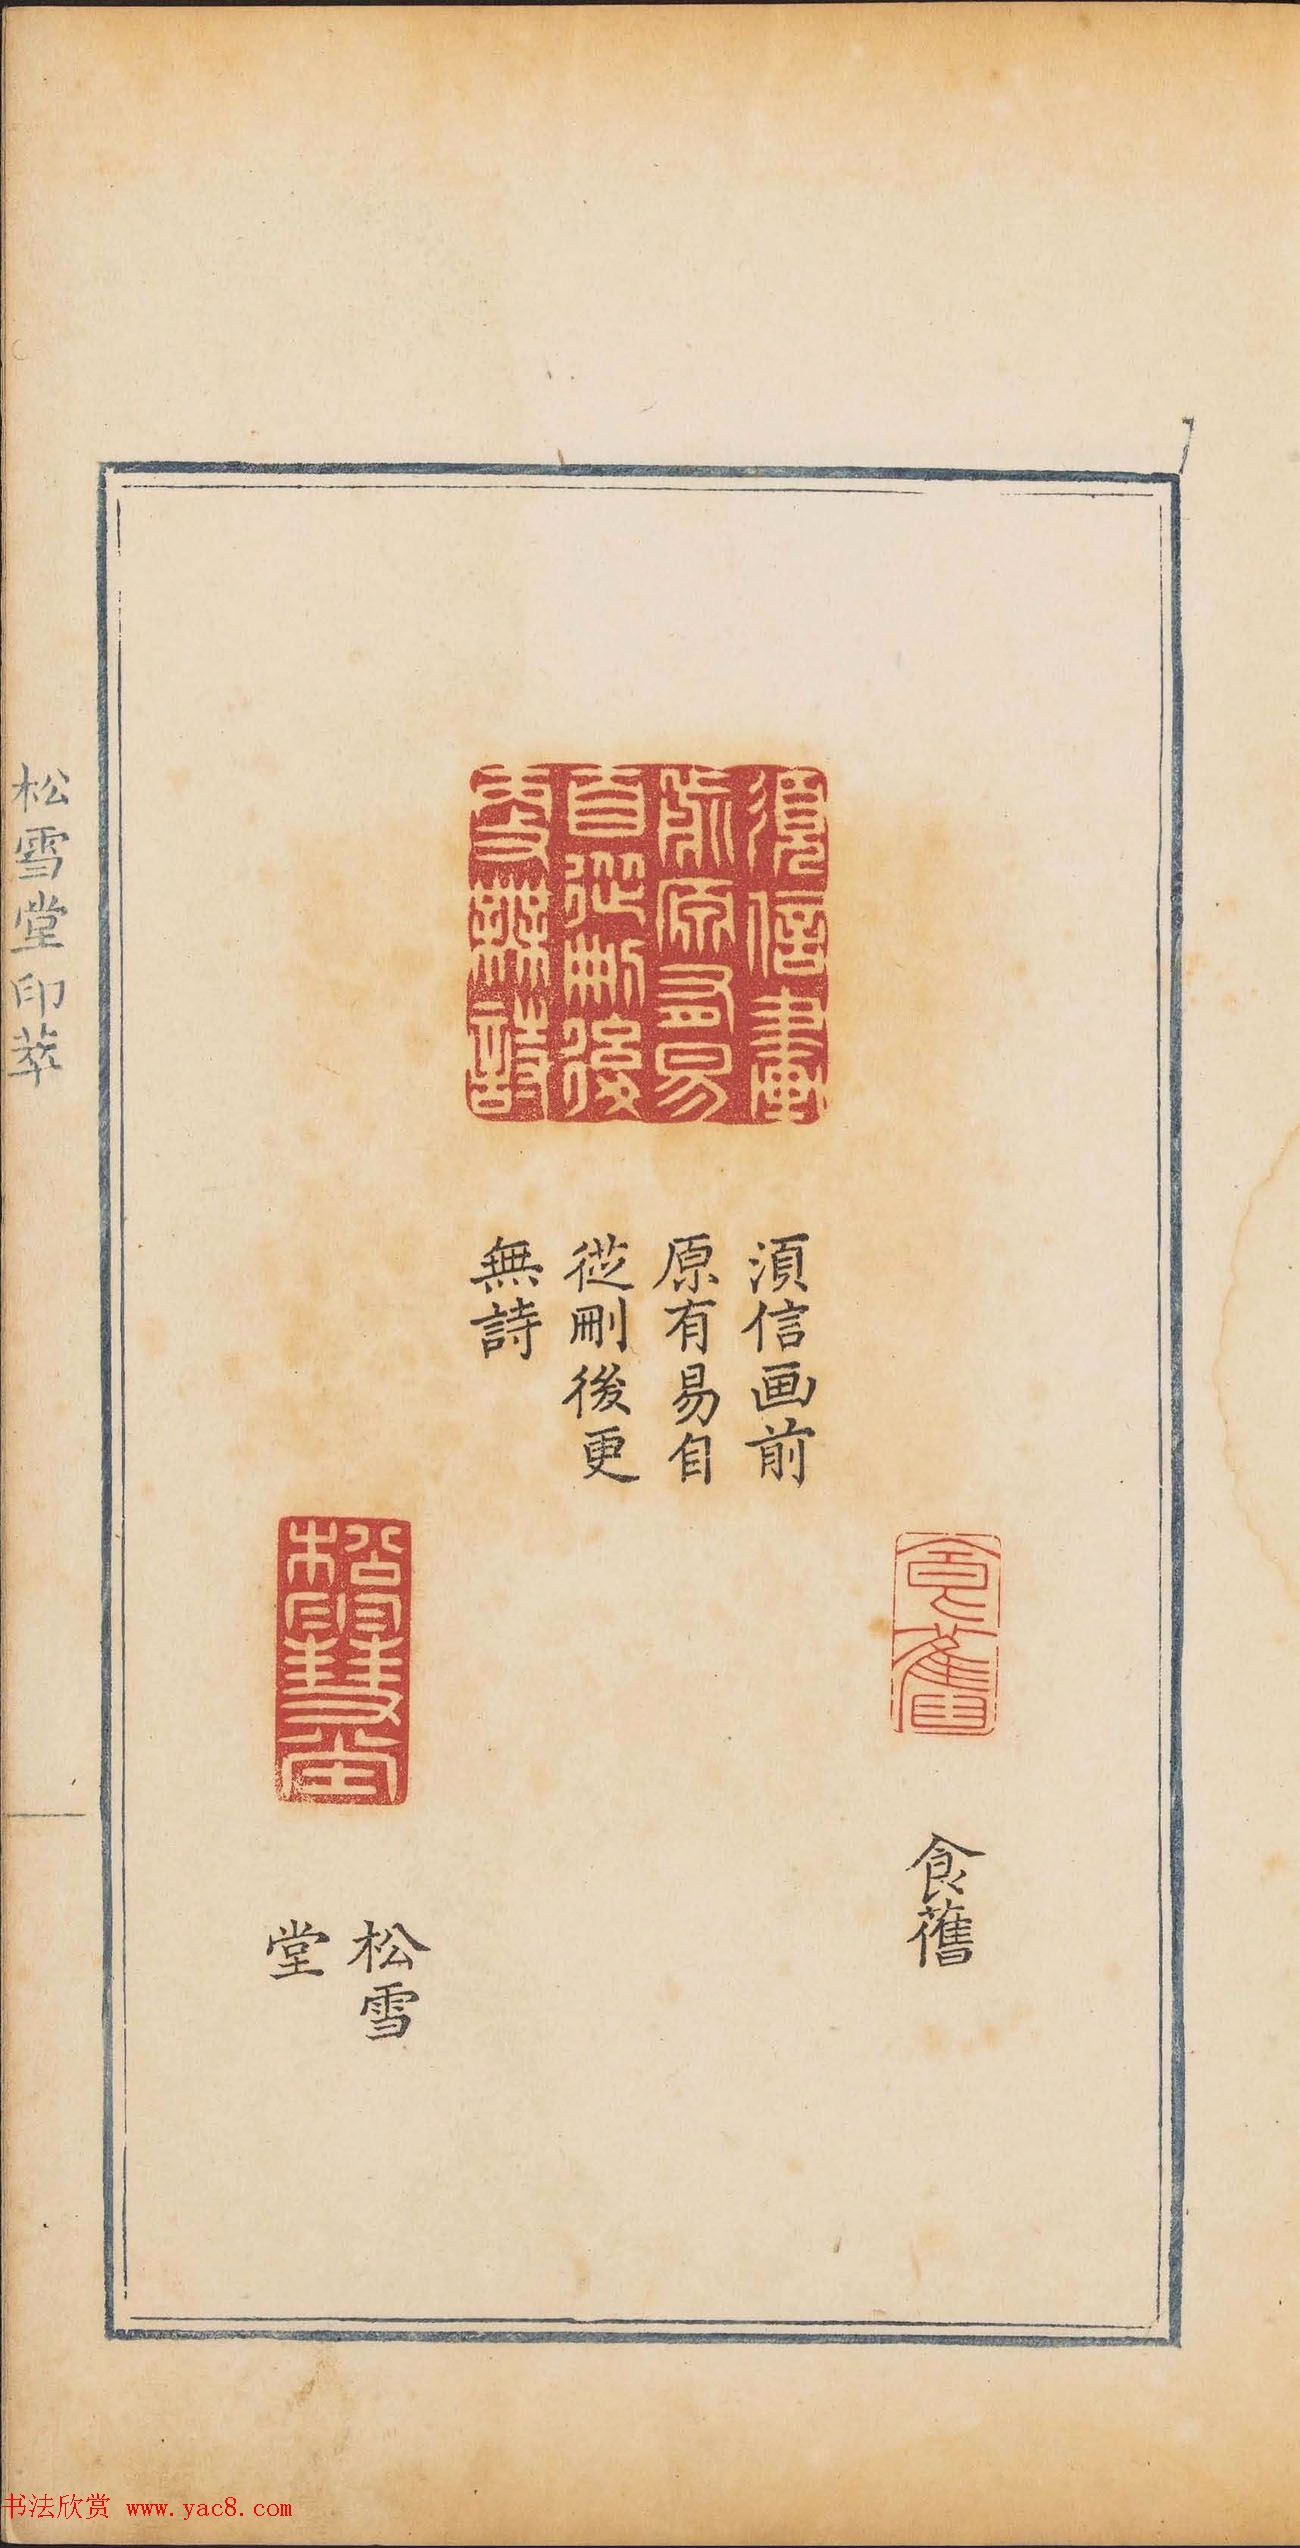 須信畫
前原有易
自從刪後
更無詩
湏信画前
原有易自
從刪後更
無詩
食舊
食舊
松雪堂
松雪
堂
松雪堂印萃
书法欣赏 www.yac8.com